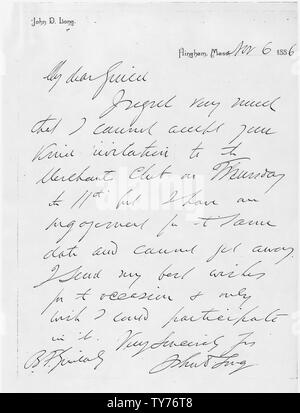 John D. Long.
Hingham, Mass. Nov 6 1886
My dear Guild
I regret very much
that I cannot accept your
kind invitation to the
Merchant Club on Thursday
the 11th for I have an
engagement for the same
date and cannot get away.
I send my best wishes
for the occasion & only
wish I could participate
in it. Very Sincerely Yrs
John D Long
alamy
Image ID: TY76T8
www.alamy.com